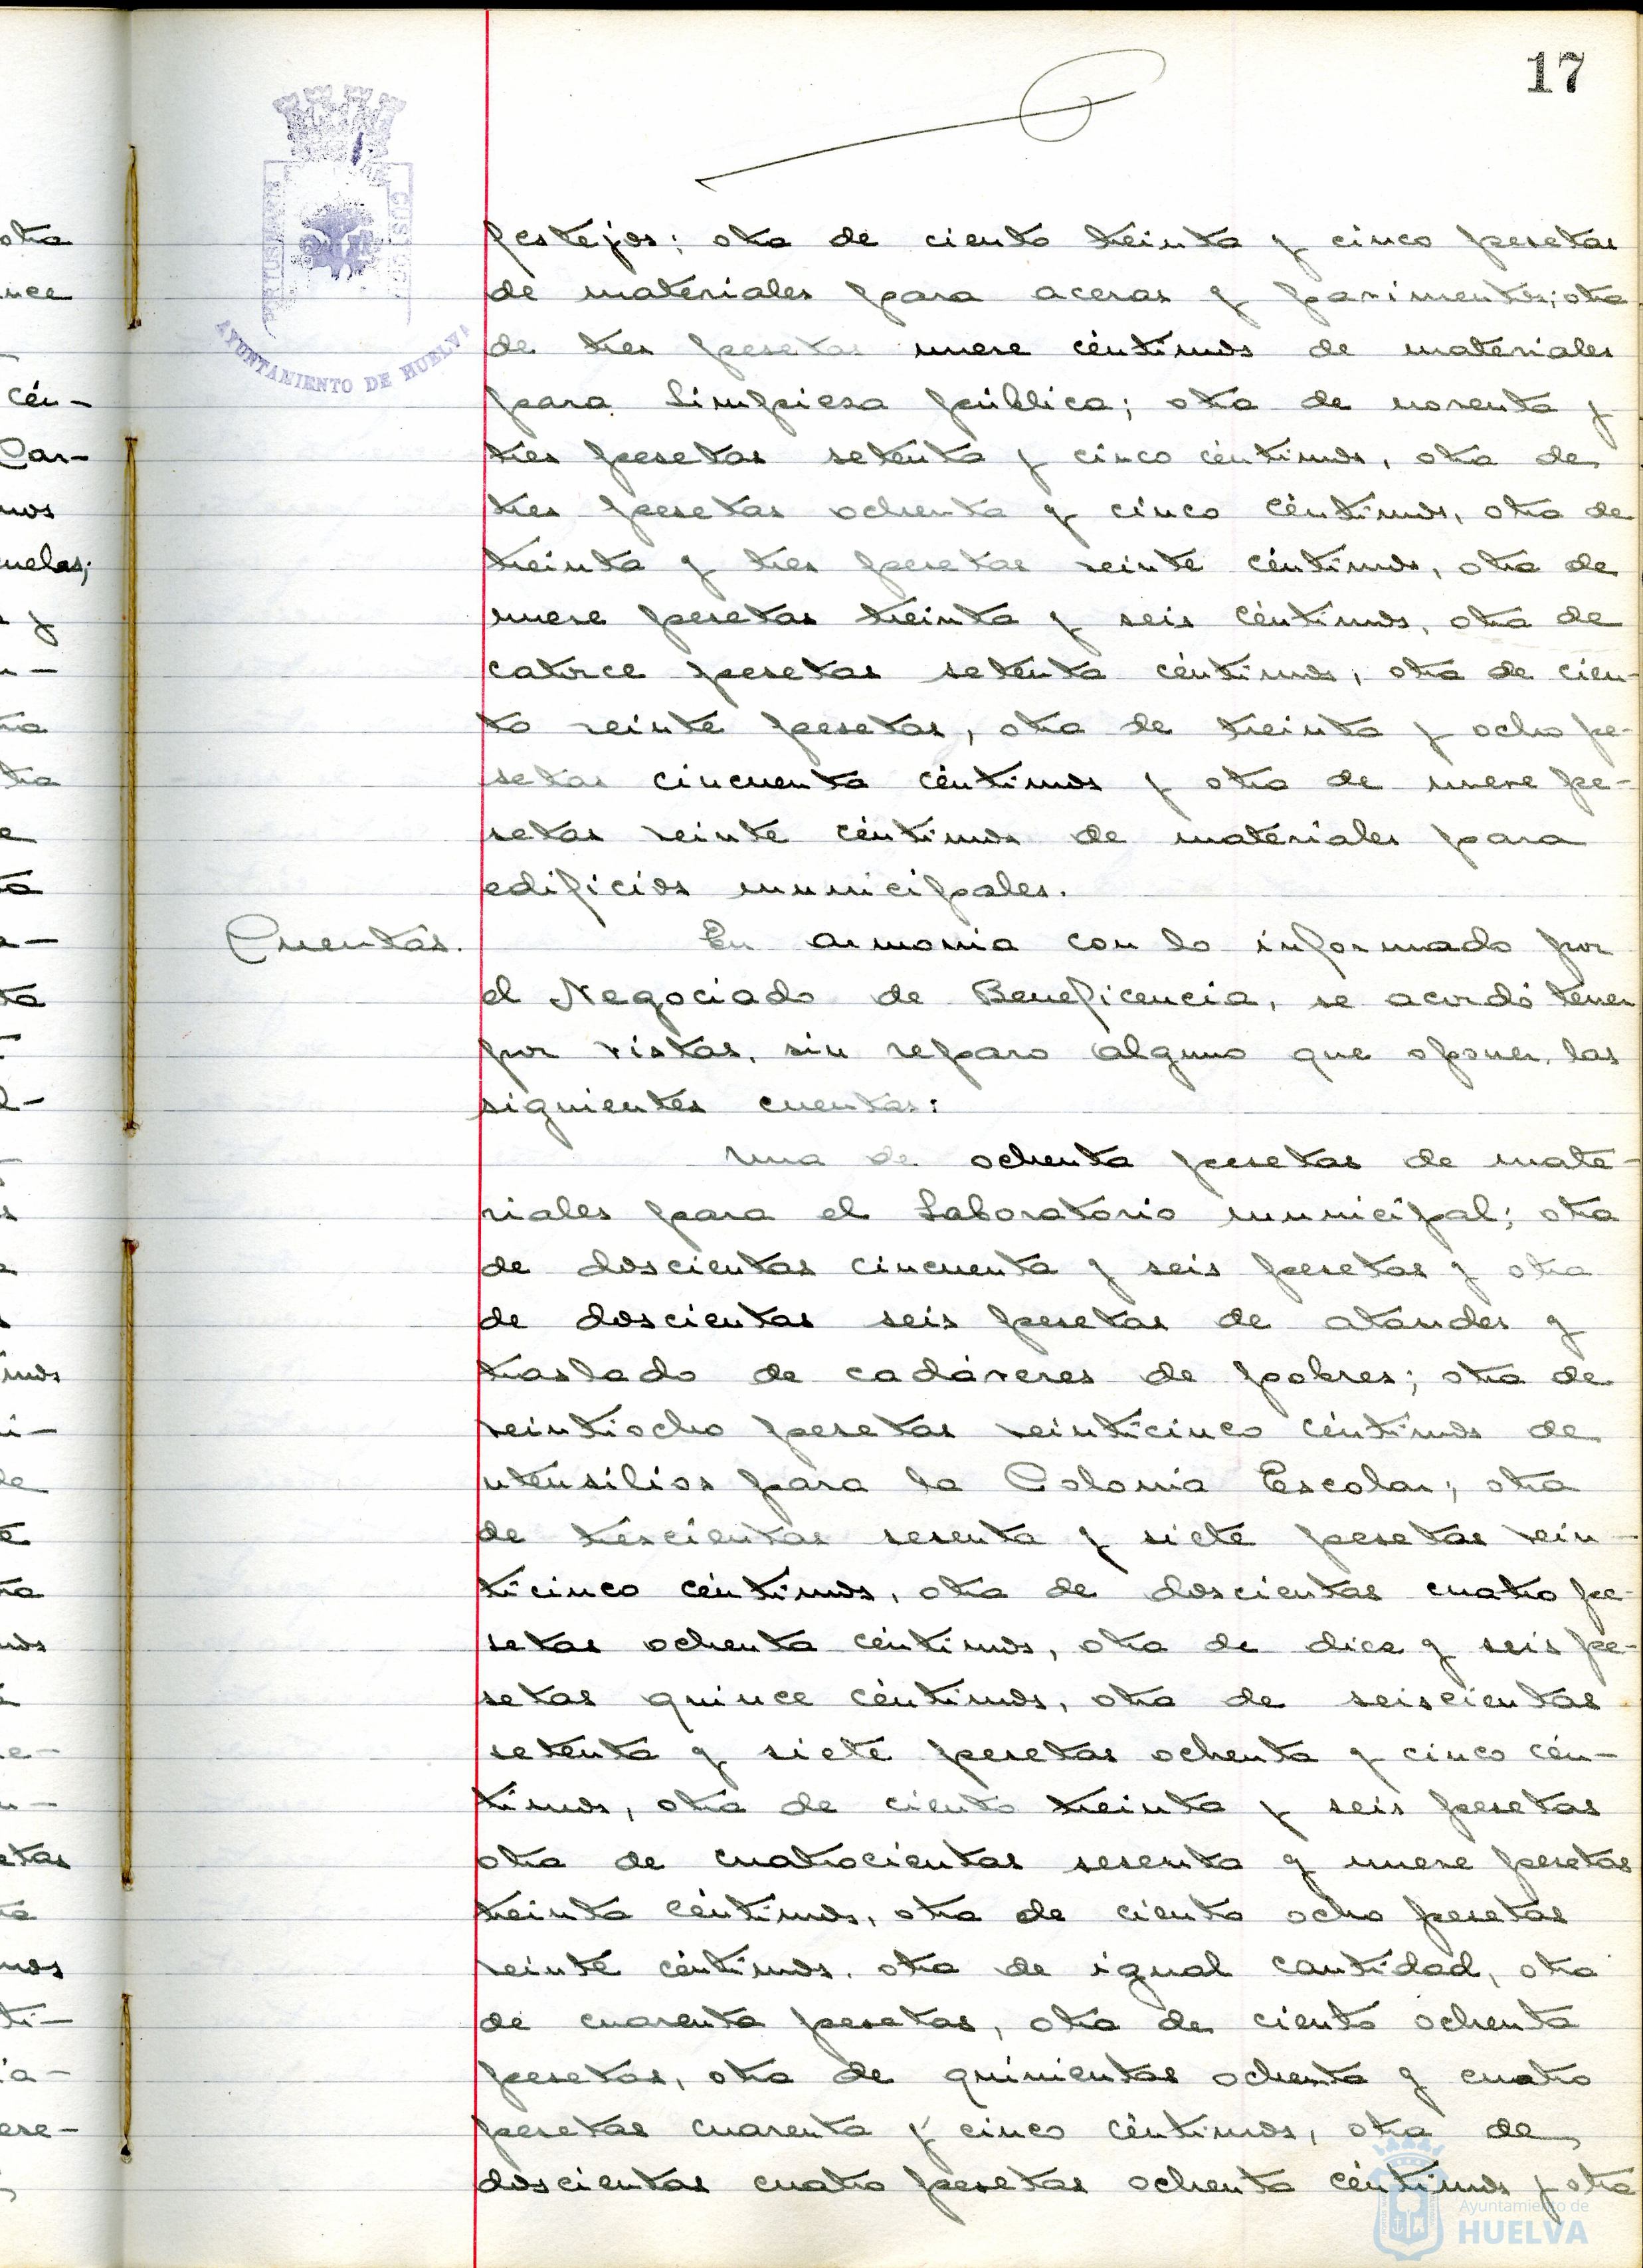 17
PORTUS MARIS
CUSTODIA
AYUNTAMIENTO DE HUELVA
festejos; otra de ciento treinta y cinco pesetas
de materiales para aceras y pavimentos; otra
de tres pesetas nueve céntimos de materiales
para limpieza pública; otra de noventa y
tres pesetas setenta y cinco céntimos, otra de
tres pesetas ochenta y cinco céntimos, otra de
treinta y tres pesetas veinte céntimos, otra de
nueve pesetas treinta y seis céntimos, otra de
catorce pesetas setenta céntimos, otra de cien-
to veinte pesetas, otra de treinta y ocho pe-
setas cincuenta céntimos y otra de nueve pe-
setas veinte céntimos de materiales para
edificios municipales.
Cuentas.
En armonia con lo informado por
el Negociado de Beneficencia, se acordó tener
por vistas, sin reparo alguno que oponer, las
siguientes cuentas:
Una de ochenta pesetas de mate-
riales para el Laboratorio municipal; otra
de doscientas cincuenta y seis pesetas y otra
de doscientas seis pesetas de ataudes y
traslado de cadáveres de pobres; otra de
veintiocho pesetas veinticinco céntimos de
utensilios para la Colonia Escolar; otra
de trescientas sesenta y siete pesetas vein-
ticinco céntimos, otra de doscientas cuatro pe-
setas ochenta céntimos, otra de diez y seis pe-
setas quince céntimos, otra de seiscientas
setenta y siete pesetas ochenta y cinco cén-
timos, otra de ciento treinta y seis pesetas
otra de cuatrocientas sesenta y nueve pesetas
treinta céntimos, otra de ciento ocho pesetas
veinte céntimos, otra de igual cantidad, otra
de cuarenta pesetas, otra de ciento ochenta
pesetas, otra de quinientas ochenta y cuatro
pesetas cuarenta y cinco céntimos, otra de
doscientas cuatro pesetas ochenta céntimos y otra
Ayuntamiento de
HUELVA